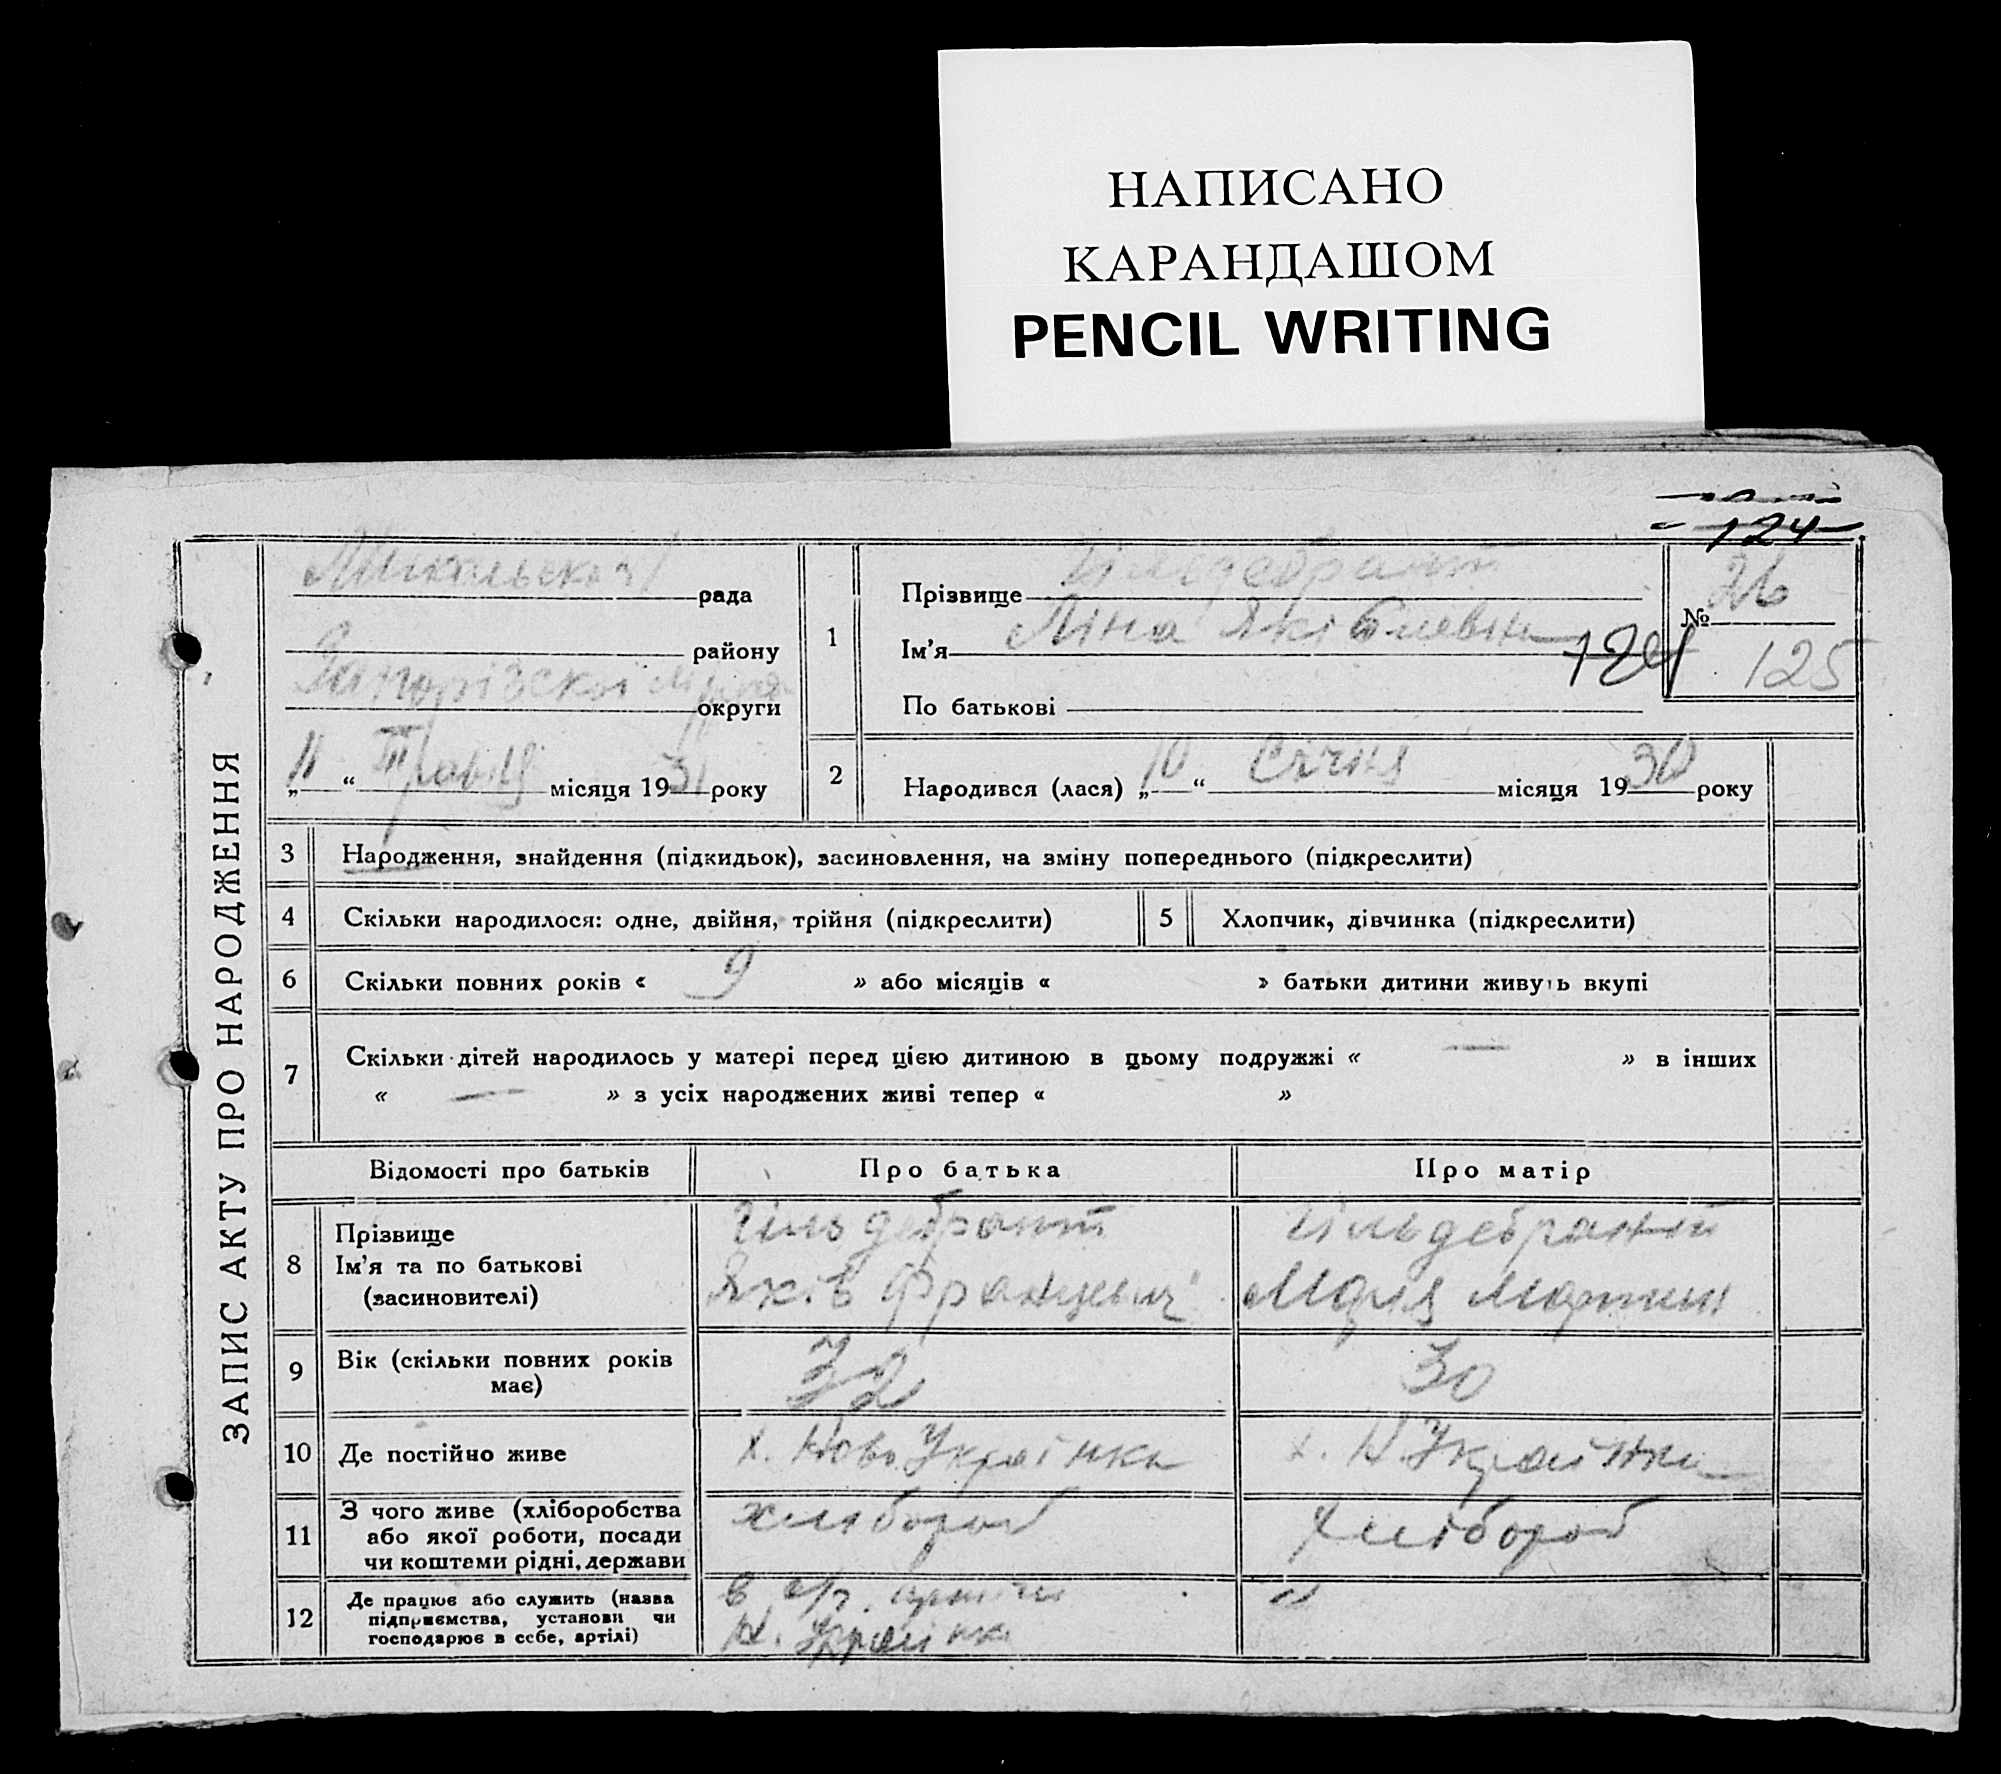 НАПИСАНО
КАРАНДАШОМ
PENCIL WRITING
124
ЗАПИС АКТУ ПРО НАРОДЖЕННЯ
рада
району
Запорізской
округи
„ 11 “ Травня місяця 1931 року
1
Прізвище Гільдебрант
Ім'я Ліна Яківлевна
По батькові
№ 26
124 125
2
Народився (лася) „ 10 “ Січня місяця 1930 року
3 Народження, знайдення (підкидьок), засиновлення, на зміну попереднього (підкреслити)
4 Скільки народилося: одне, двійня, трійня (підкреслити) 5 Хлопчик, дівчинка (підкреслити)
6 Скільки повних років « 9 » або місяців « » батьки дитини живуть вкупі
7 Скільки дітей народилось у матері перед цією дитиною в цьому подружжі « — » в інших
« — » з усіх народжених живі тепер « »
Відомості про батьків Про батька Про матір
8 Прізвище
Ім'я та по батькові
(засиновителі)
Гільдебрант
Яків Францевич
Гільдебрант
Марія Мартин
9 Вік (скільки повних років
має)
32 30
10 Де постійно живе х. Ново Українка х. Н. Українка
11 З чого живе (хліборобства
або якої роботи, посади
чи коштами рідні, держави
хлібороб хлібороб
12 Де працює або служить (назва
підприємства, установи чи
господарює в себе, артілі)
в с/г. артілі
Н. Українка